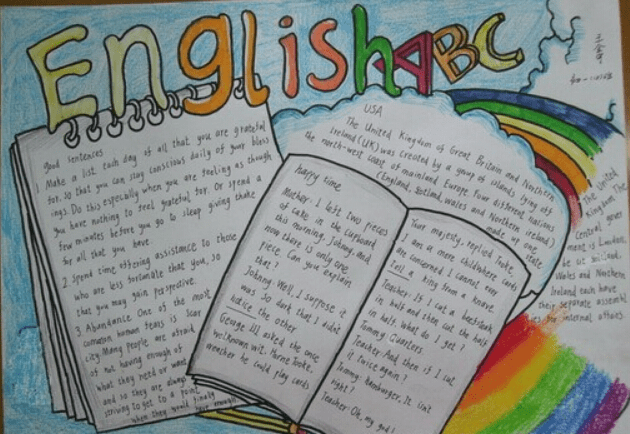 English ABC
good sentences
1. Make a list each day of all that you are grateful
for. so that you can stay conscious daily of your bless
ings. Do this especially when you are feeling as though
you have nothing to feel grateful for. Or spend a
few minutes before you go to sleep giving thanks
for all that you have
2. Spend time offering assistance to those
who are less fortunate that you, so
that you may gain perspective.
3. Abundance One of the most
common human fears is scar
city. Many people are afraid
of not having enough of
what they need or want
and so they are always
striving to get to a point
when they would finally
have enough
happy time
Mother: I left two pieces
of cake in the cupboard
this morning, Johnny, And
now there is only one
piece. Can you explain
that?
Johnny: Well, I suppose it
was so dark that I didn't
notice the other
George III asked the once
well known wit. Horne Tooke,
weather he could play cards
Your majesty, replied Tooke,
I am a mere child where cards
are concerned I cannot even
tell a king from a knave
Teacher: If I cut a beefsteak
in half and then cut the half
in half. what do I get?
Tommy: Quarters.
Teacher: And then if I cut
it twice again?
Tommy: Hamburger, It isn't
right?
Teacher: Oh, my god!
USA
The United Kingdom of Great Britain and Northern
Ireland (UK) was created by a group of islands lying off
the north-west coast of mainland Europe Four different nations
(England, Scotland, wales and Northern ireland)
made up one
state
The United
Kingdom The
Central gover
ment is London,
Wales and Northern
Ireland each have
their separate assembl
ies for internal affairs.